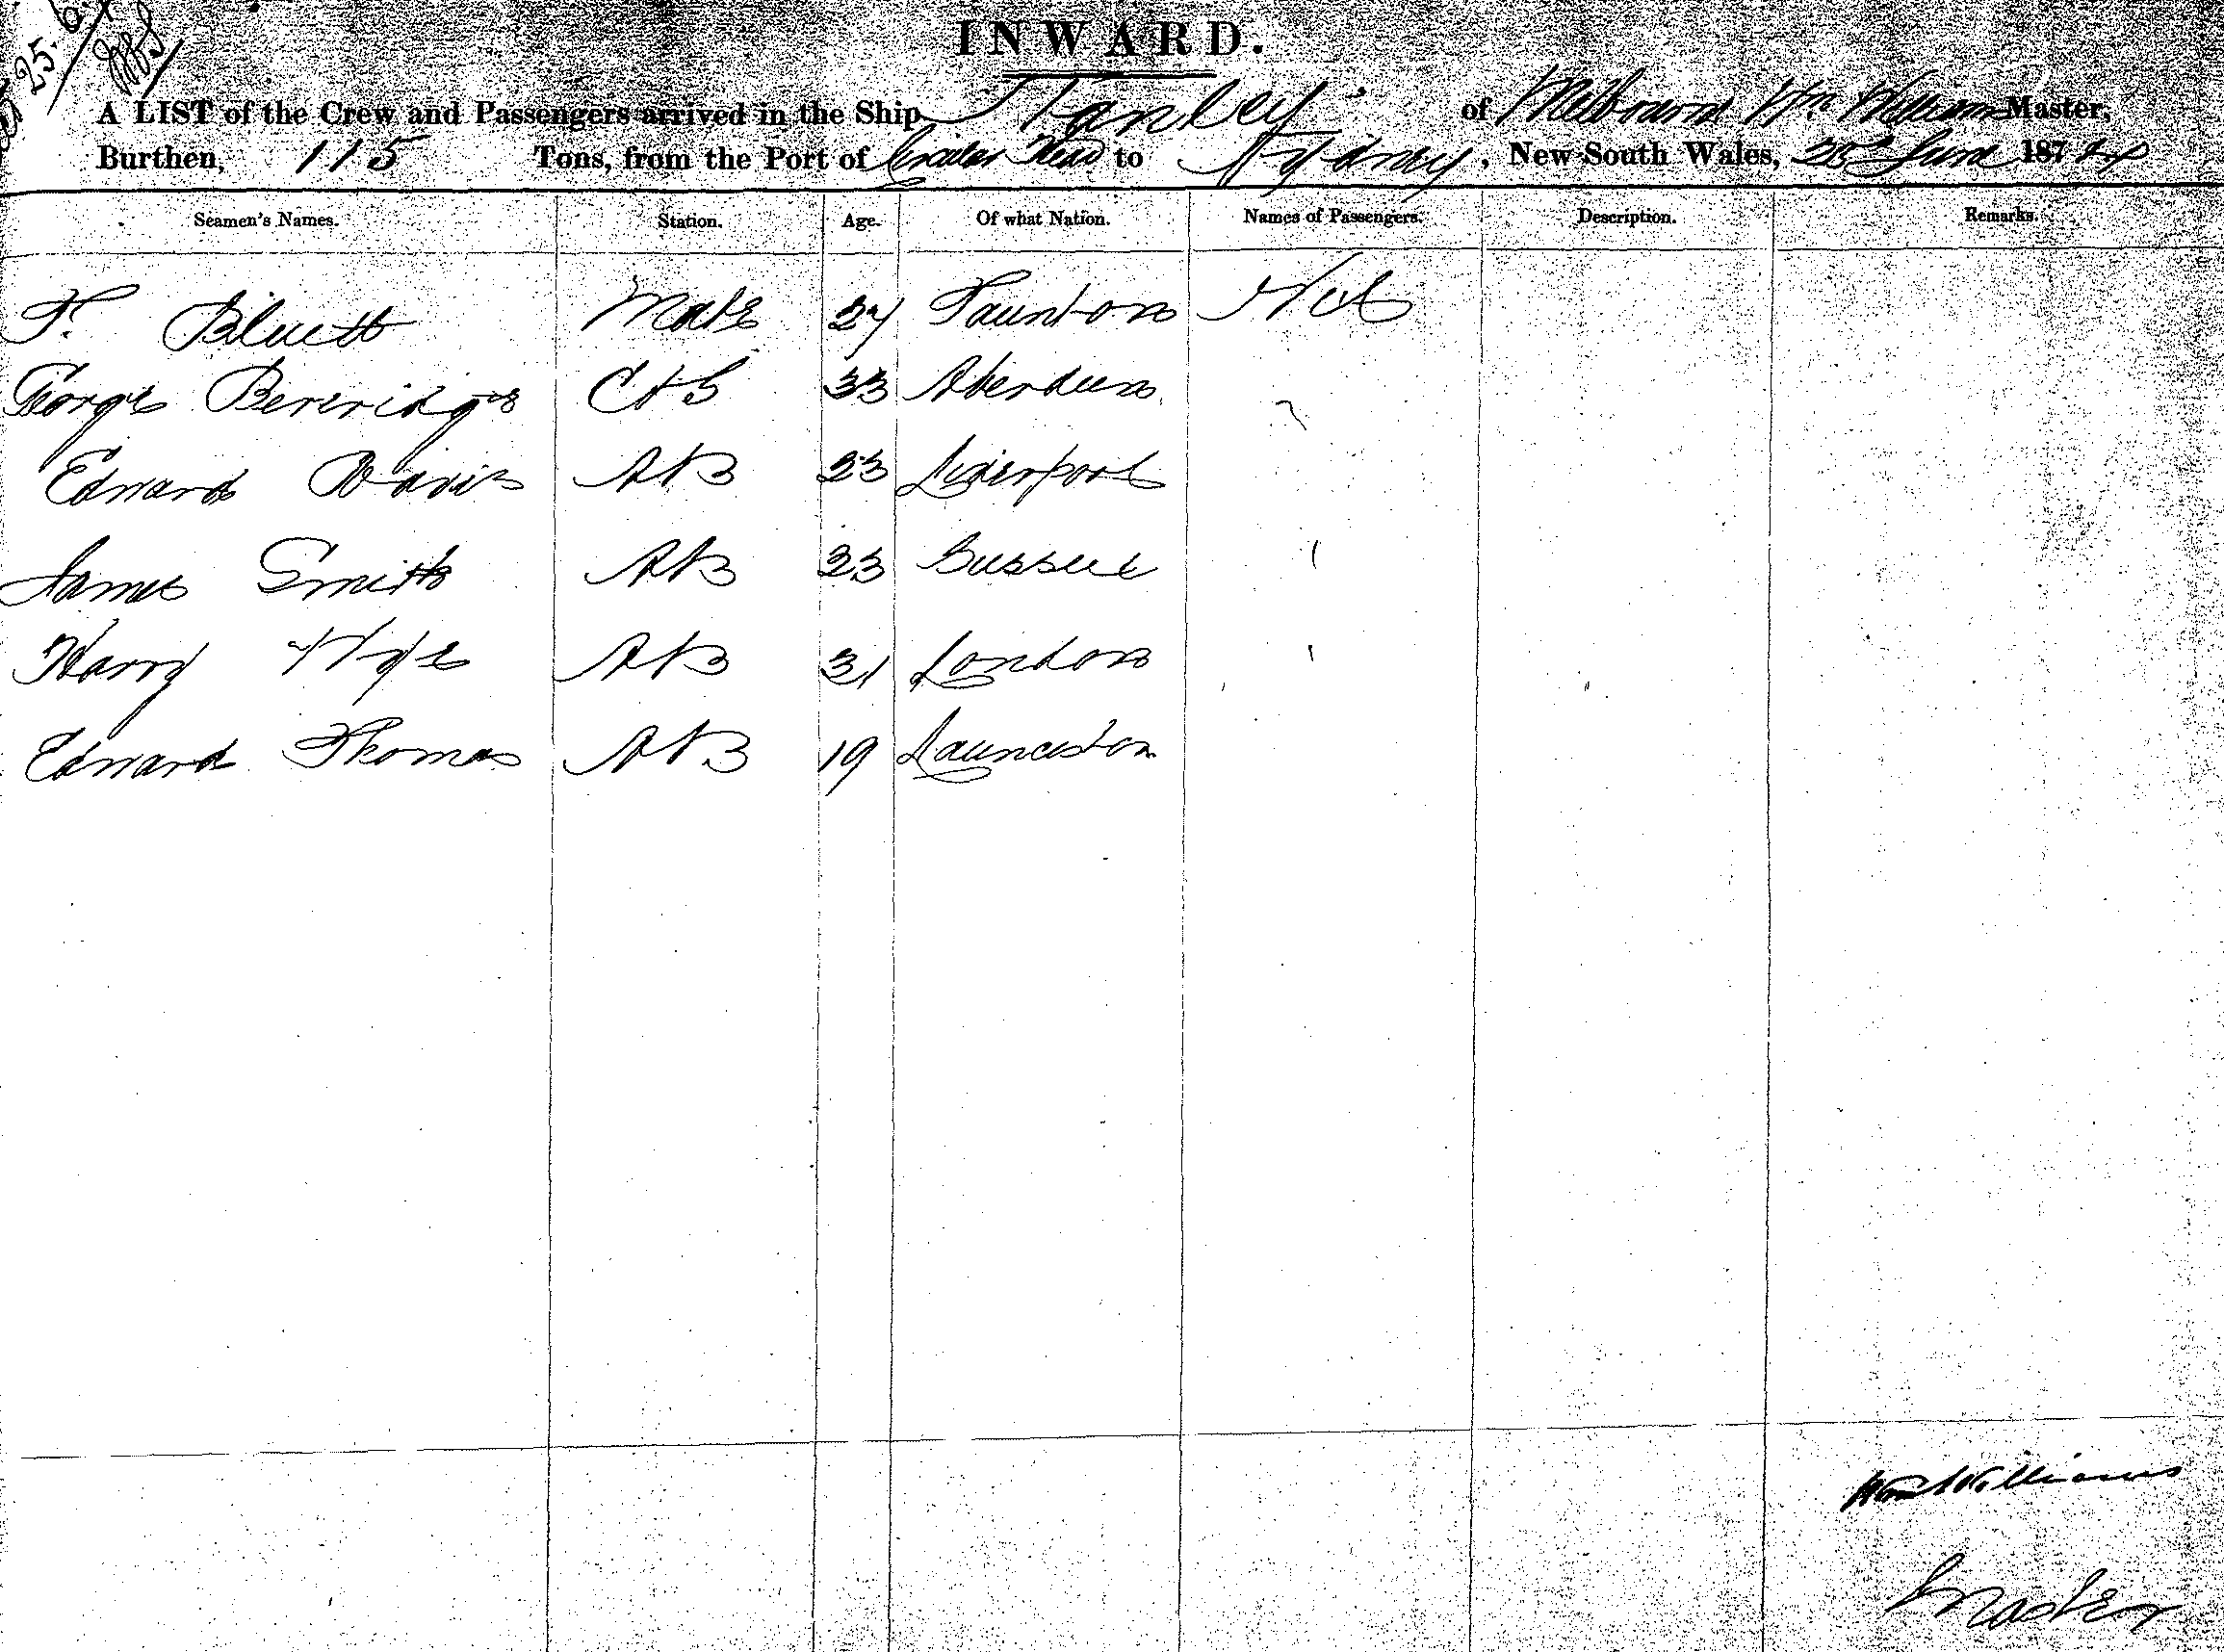 25.6
INWARD.
A LIST of the Crew and Passengers arrived in the Ship Stanley of Melbourne Wm Williams Master,
Burthen, 115 Tons, from the Port of Circular Head to Sydney, New South Wales, June 1874
Seamen's Names. Station. Age. Of what Nation. Names of Passengers. Description. Remarks.
F. Bluett Mate 27 Taunton Nil
George Beveridge C & S 33 Aberdeen
Edward Davis AB 23 Liverpool
James Smith AB 23 Sussex
Harry Hyde AB 31 London
Edward Thomas AB 19 Launceston
Wm Williams
Master